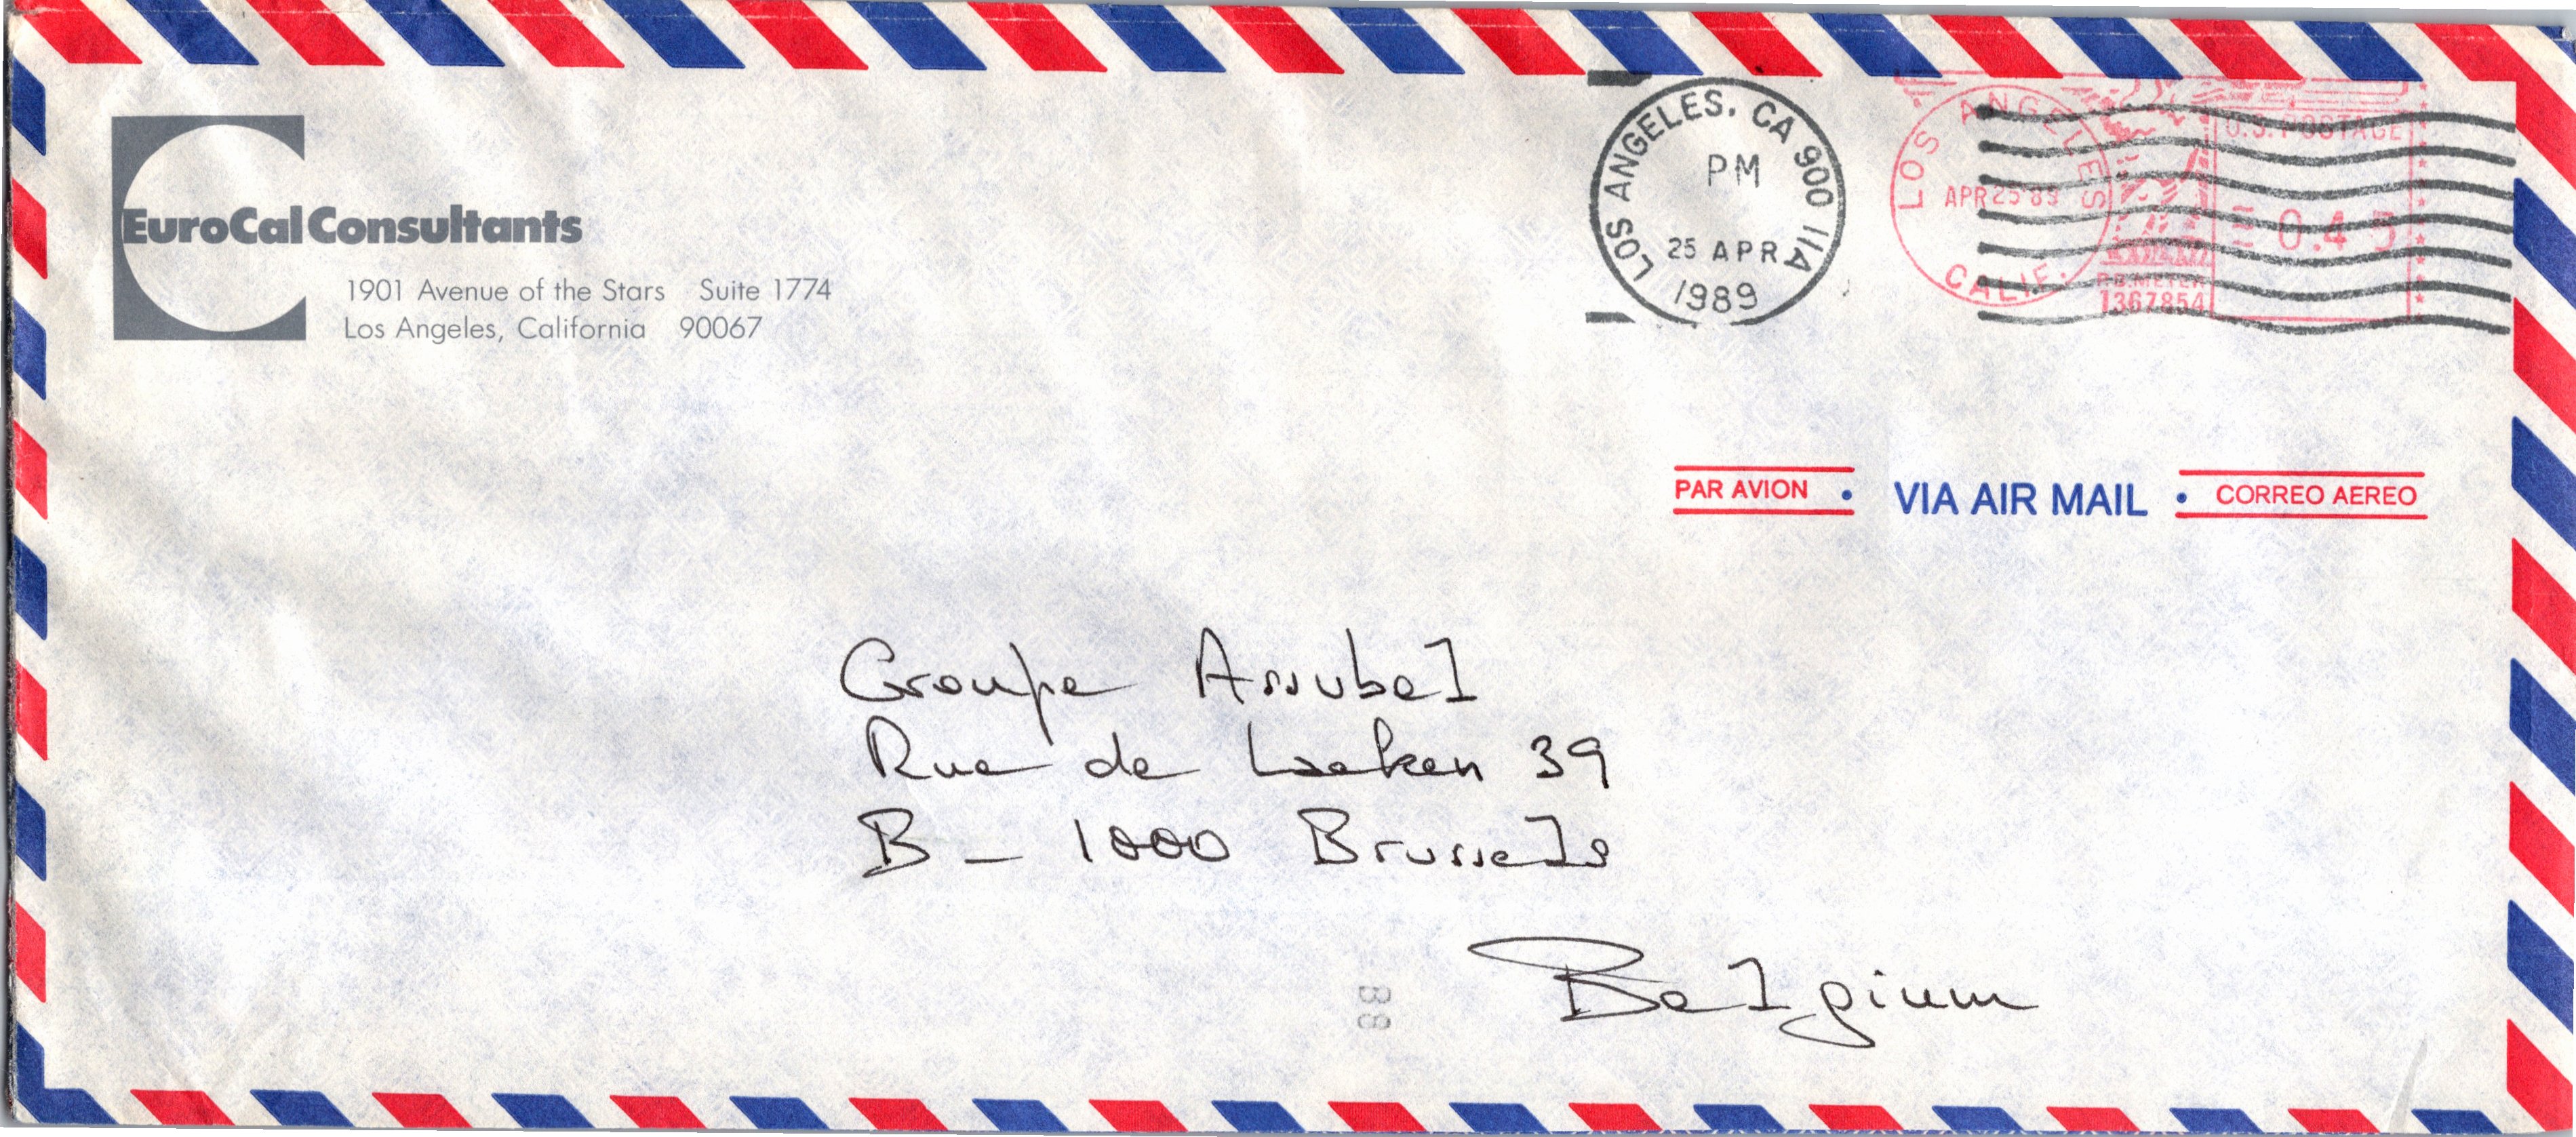 EuroCal Consultants
1901 Avenue of the Stars Suite 1774
Los Angeles, California 90067
LOS ANGELES, CA 900 11A
PM
25 APR
1989
LOS ANGELES
APR 25 89
CALIF.
U.S. POSTAGE
0.45
P.B. METER
1367854
PAR AVION • VIA AIR MAIL • CORREO AEREO
Groupe Assubel
Rue de Laeken 39
B - 1000 Brussels
Belgium